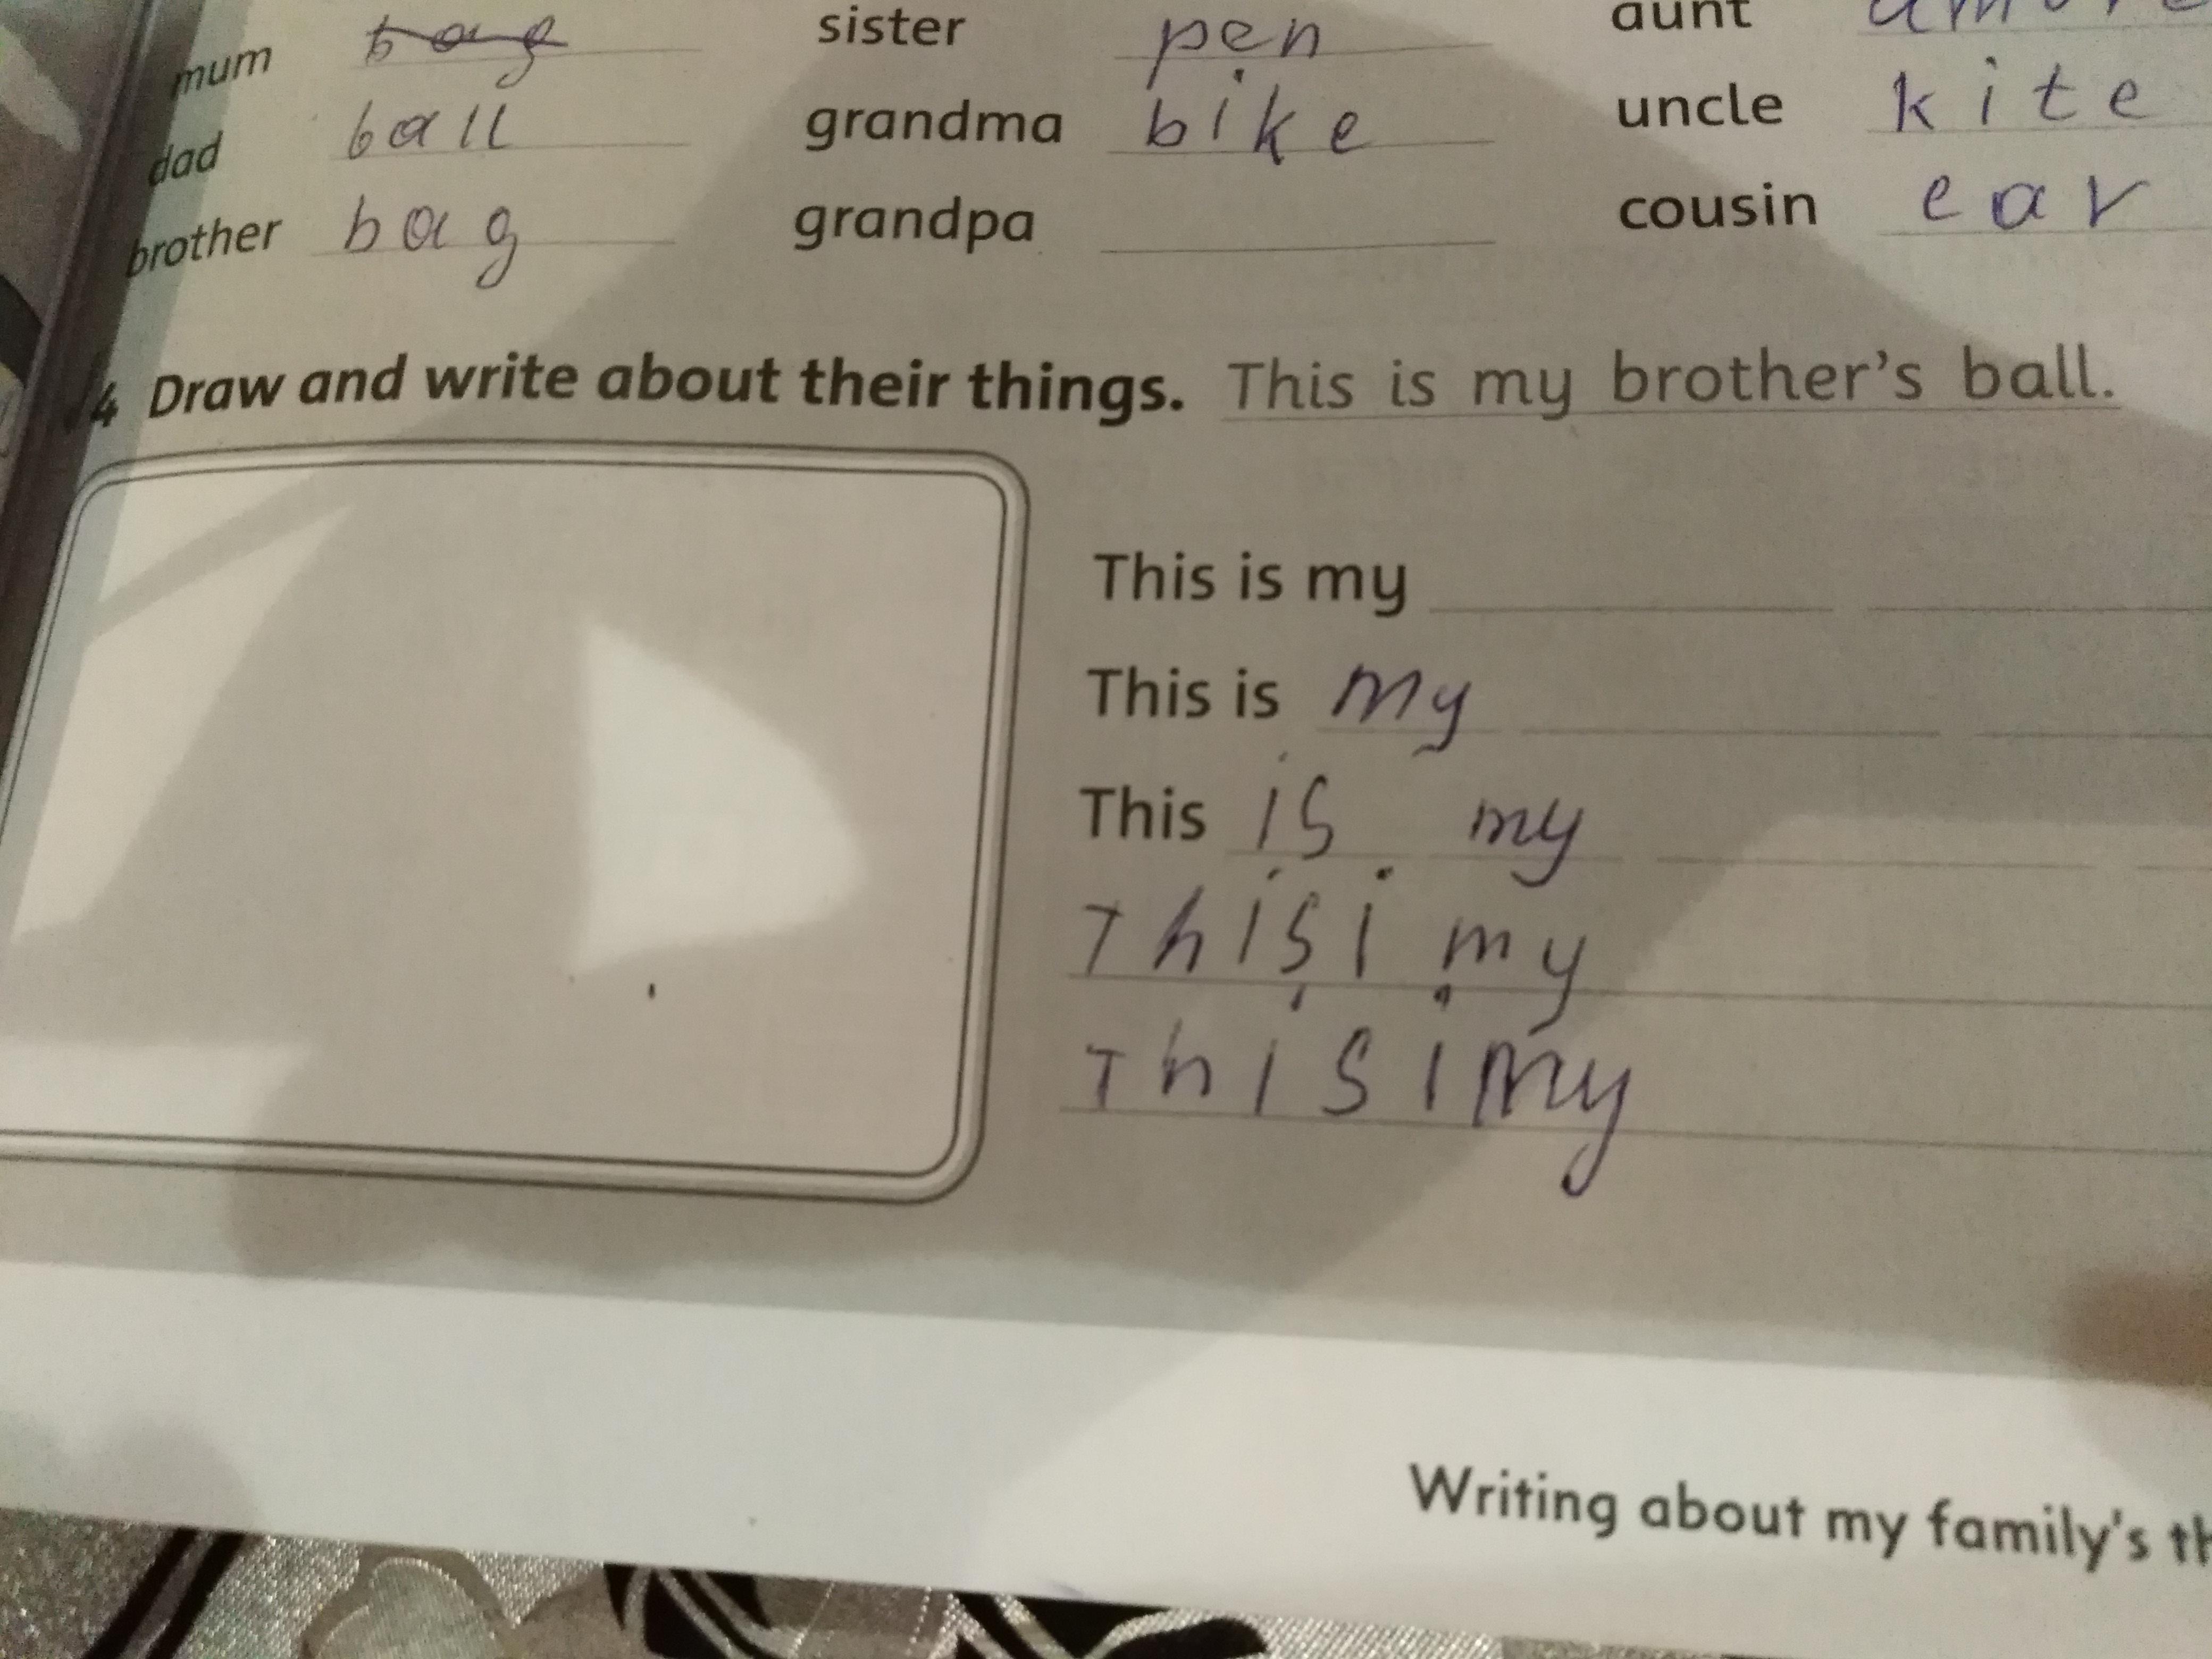 mum bag sister pen aunt
dad ball grandma bike uncle kite
brother bag grandpa cousin ear
4 Draw and write about their things. This is my brother's ball.
This is my
This is my
This is my
This i my
This i my
Writing about my family's